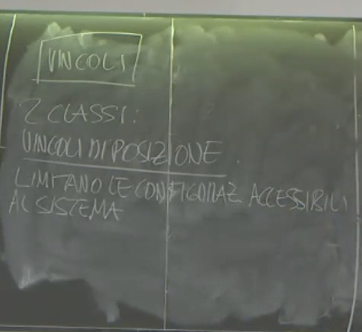 VINCOLI
2 CLASSI:
VINCOLI DI POSIZIONE.
LIMITANO LE CONFIGURAZ ACCESSIBILI
AL SISTEMA